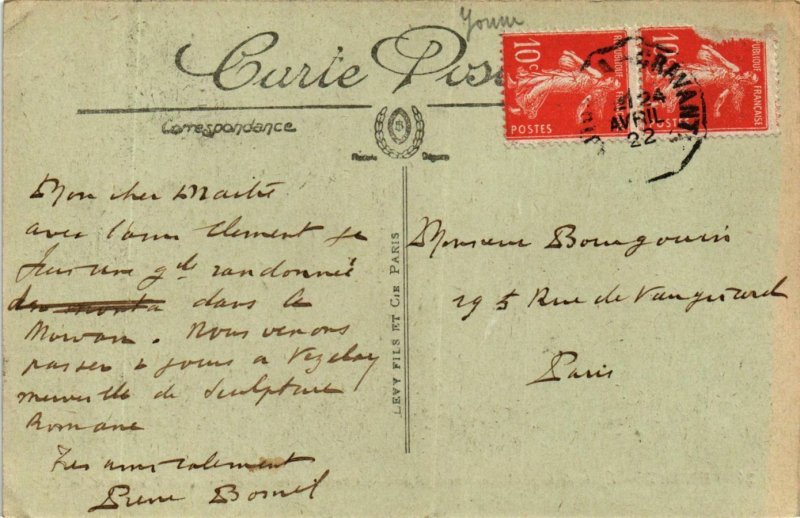 Yonne
Carte Posta
Correspondance
10c
RÉPUBLIQUE FRANÇAISE
POSTES
10
RÉPUBLIQUE FRANÇAISE
POSTES
CRAVANT
24
AVRIL
22
LEVY FILS ET CIE PARIS
Mon cher Maitre
avec l'ami Clement je
fais une gde randonnée
dans le
Morvan. Nous venons
passer 2 jours a Vezelay
merveille de sculpture
Romane
Tres amicalement
Pierre
Monsieur Bourgouin
195 Rue de Vaugirard
Paris